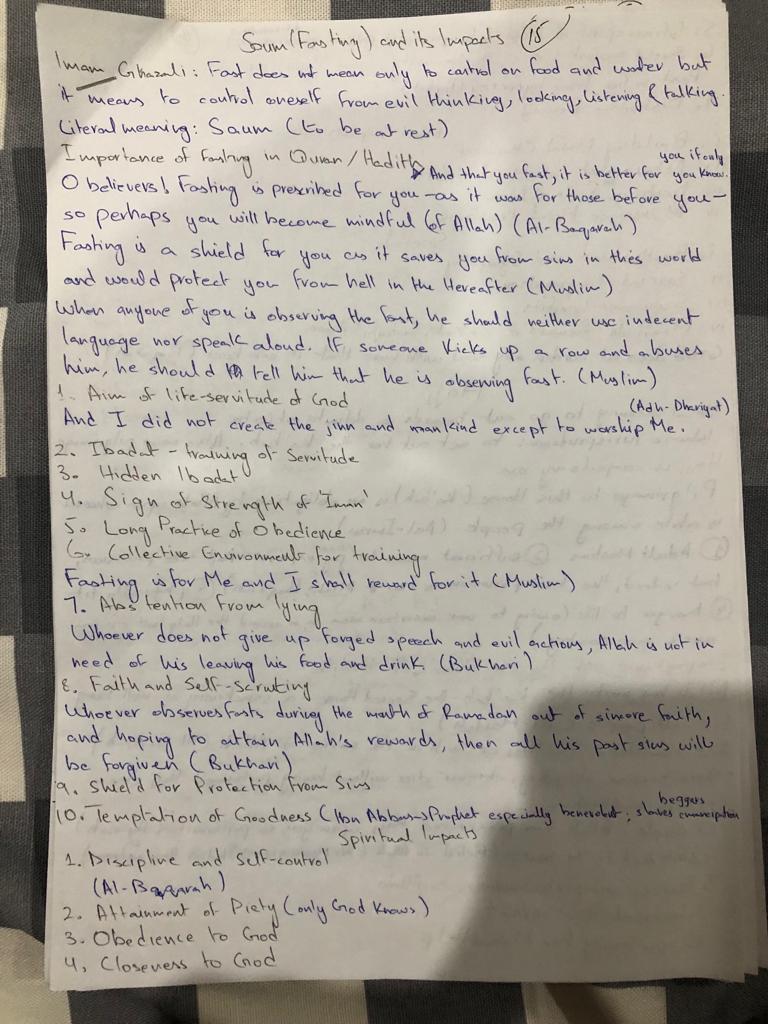 Saum (Fasting) and its Impacts (15)
Imam Ghazali: Fast does not mean only to control on food and water but
it means to control oneself from evil thinking, looking, listening & talking.
Literal meaning: Saum (to be at rest)
Importance of Fasting in Quran/Hadith → And that you fast, it is better for you if only you know.
O believers! Fasting is prescribed for you - as it was for those before you -
so perhaps you will become mindful (of Allah) (Al-Baqarah)
Fasting is a shield for you as it saves you from sins in this world
and would protect you from hell in the Hereafter (Muslim)
When anyone of you is observing the fast, he should neither use indecent
language nor speak aloud. If someone kicks up a row and abuses
him, he should tell him that he is observing fast. (Muslim)
1. Aim of life-servitude of God
And I did not create the jinn and mankind except to worship Me. (Adh-Dhariyat)
2. Ibadat - training of Servitude
3. Hidden Ibadat
4. Sign of Strength of 'Iman'
5. Long Practice of Obedience
6. Collective Environment for training
Fasting is for Me and I shall reward for it (Muslim)
7. Abstention from lying
Whoever does not give up forged speech and evil actions, Allah is not in
need of his leaving his food and drink. (Bukhari)
8. Faith and Self-Scrutiny
Whoever observes fasts during the month of Ramadan out of sincere faith,
and hoping to attain Allah's rewards, then all his past sins will
be forgiven (Bukhari)
9. Shield for Protection from Sins
10. Temptation of Goodness (Ibn Abbas-Prophet especially benevolent; beggers slaves emancipation
Spiritual Impacts
1. Discipline and Self-control
(Al-Baqarah)
2. Attainment of Piety (only God knows)
3. Obedience to God
4. Closeness to God